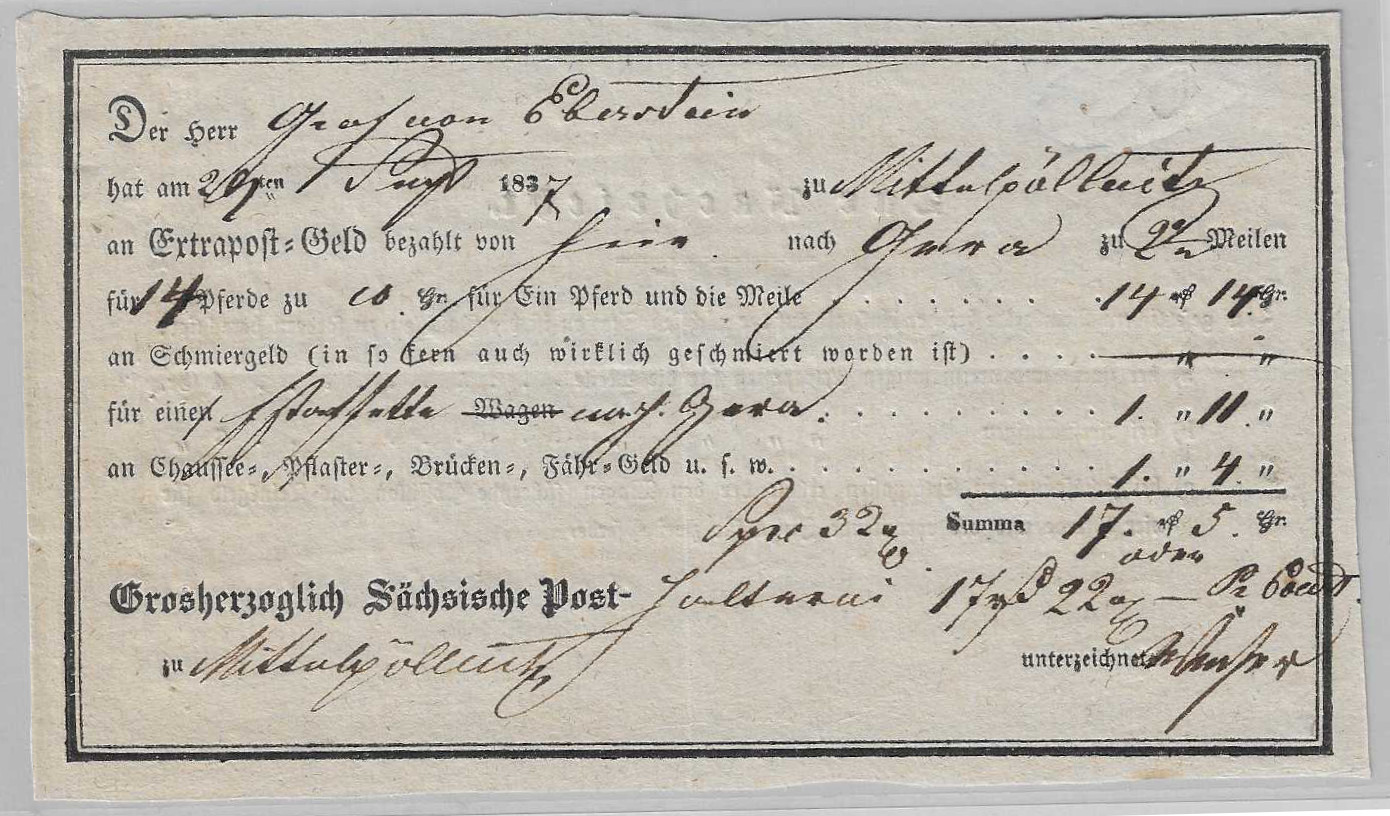 Der Herr Graf von Eberstein
hat am 29ten Sept 1837 zu Mittelpöllnitz
an Extrapost-Geld bezahlt von hier nach Gera zu 2 Meilen
für 14 Pferde zu 10 Gr. für Ein Pferd und die Meile . . . . . . . . . 14 rf 14 Gr.
an Schmiergeld (in so fern auch wirklich geschmiert worden ist) . . . . — " "
für eine Estaffette Wagen nach Gera . . . . . . . . . . 1. " 11. "
an Chaussee-, Pflaster-, Brücken-, Fähr-Geld u. s. w. . . . . . . . . . . . 1. " 4. "
32 Summa 17. rf 5. Gr.
oder
Grosherzoglich Sächsische Post-halterei 17 22
zu Mittelpöllnitz unterzeichnet